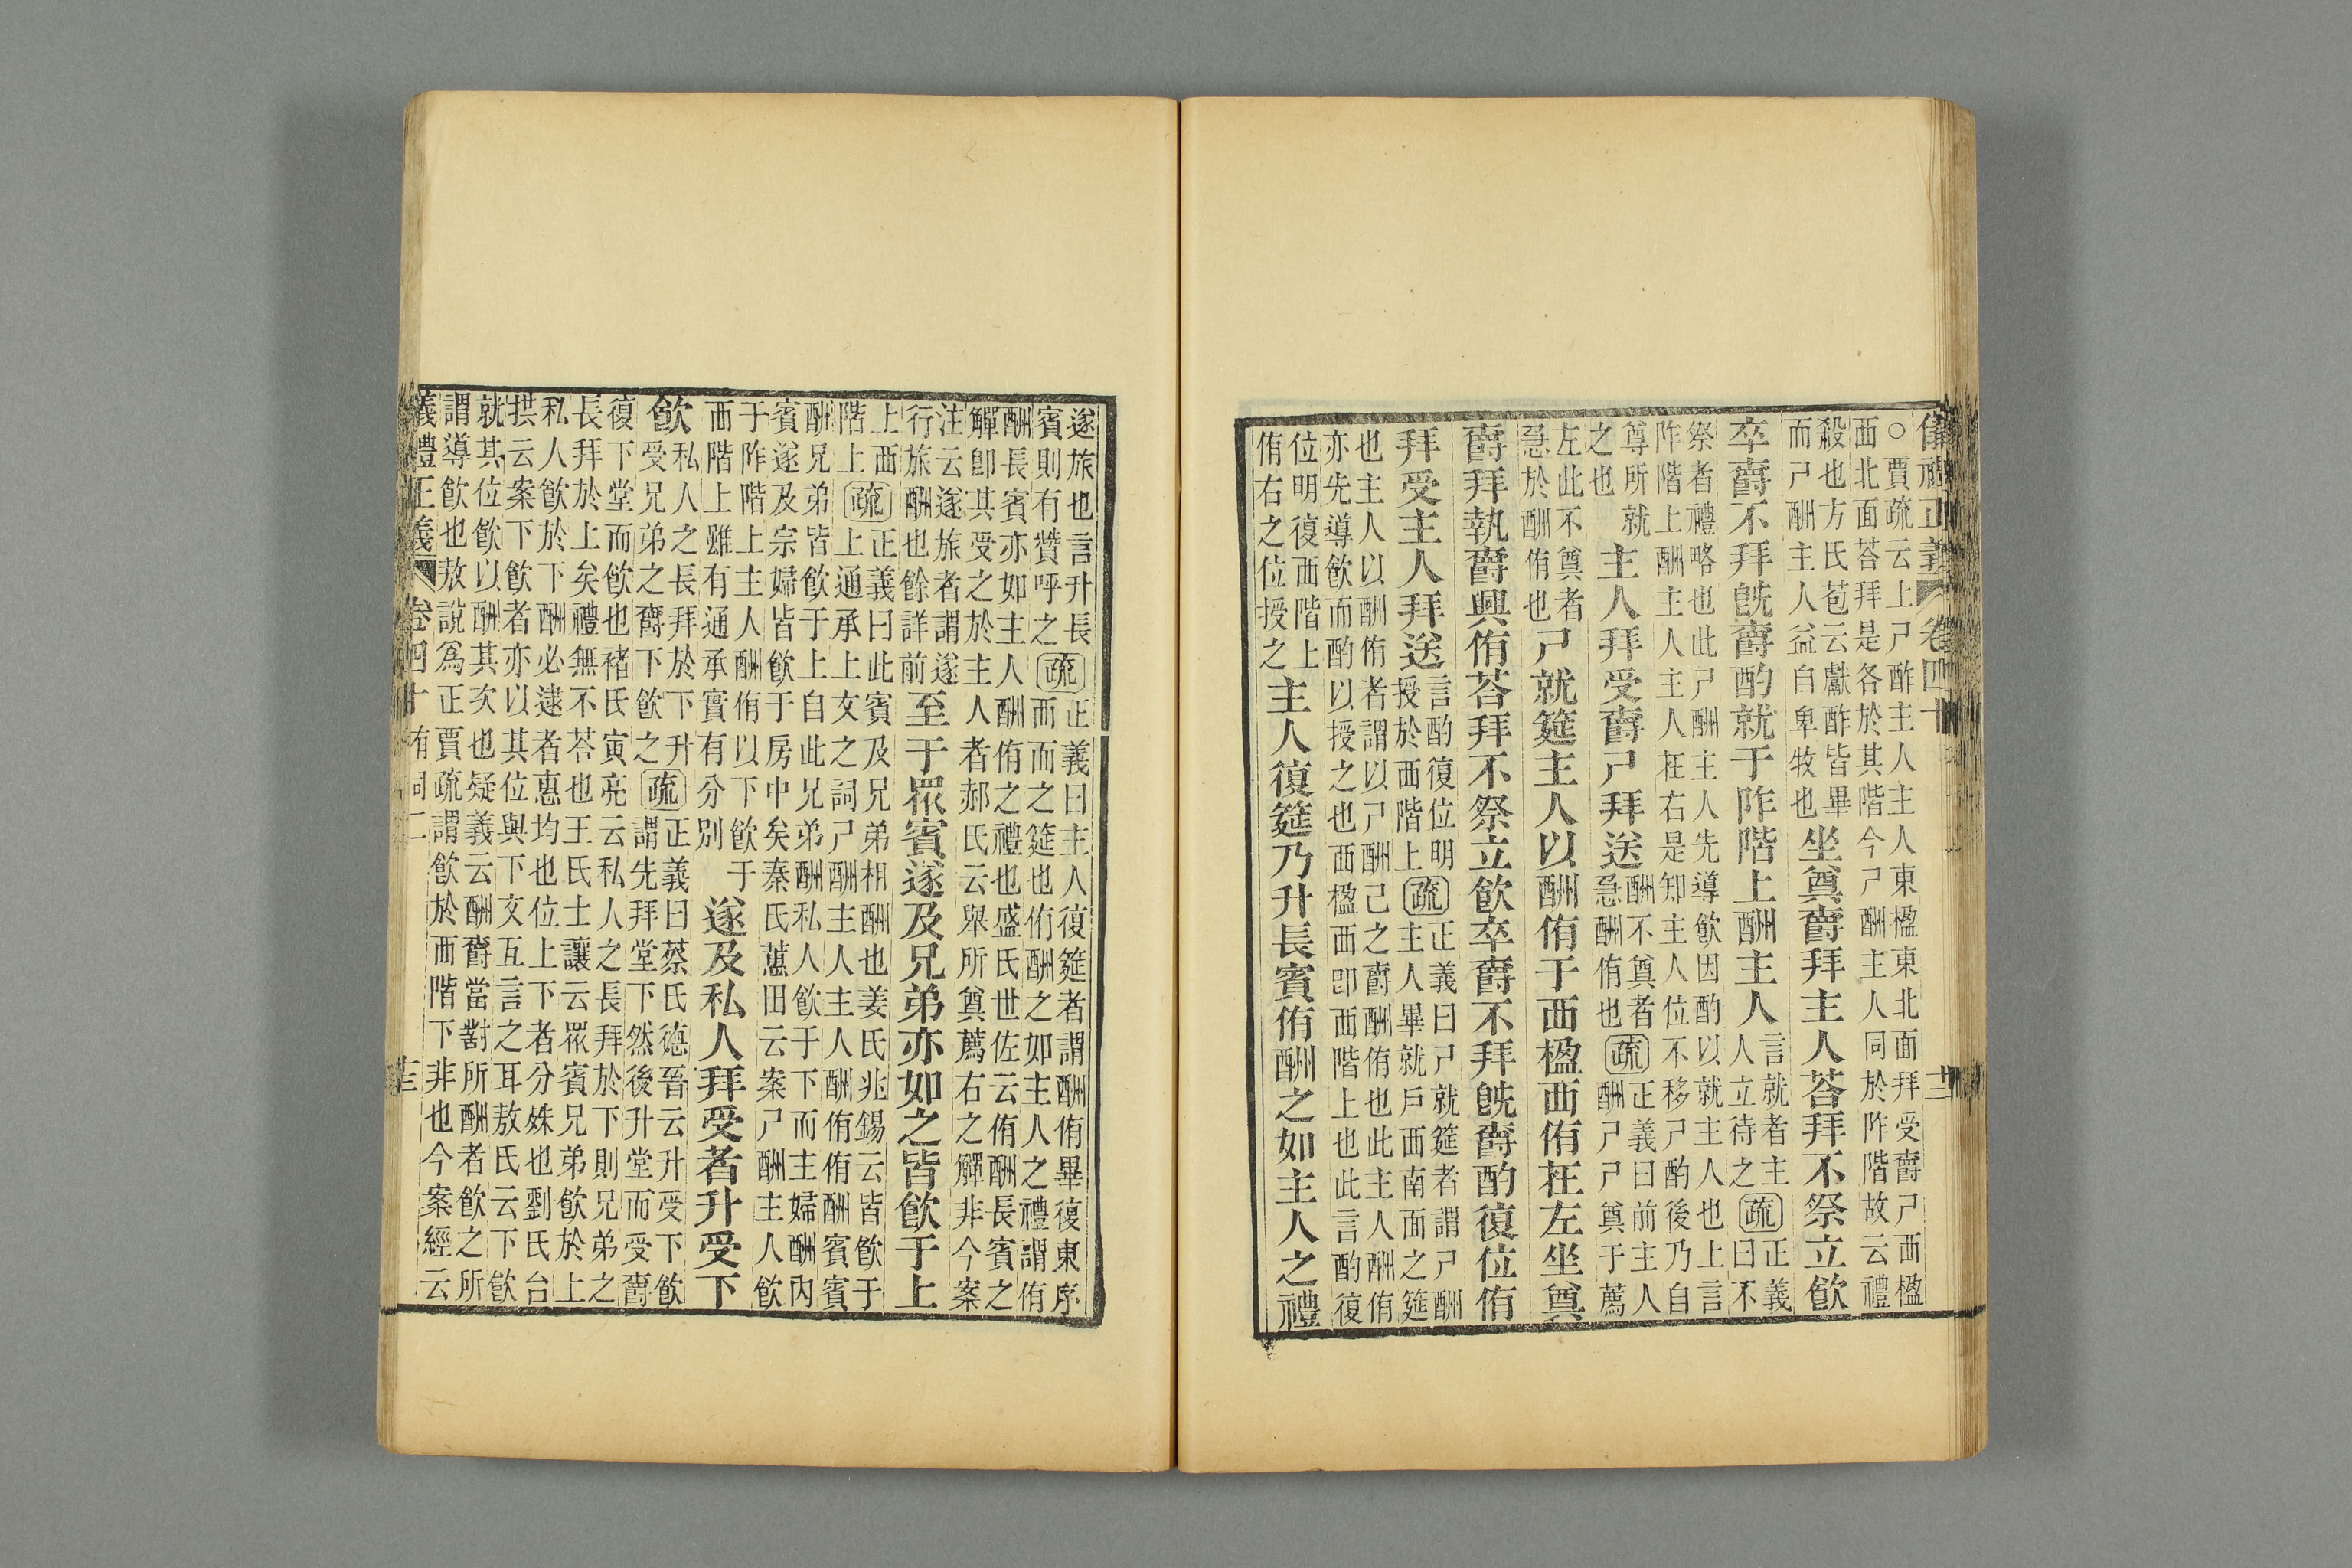 儀禮正義 卷四十
○賈疏云上尸酢主人主人東楹東北面拜受爵尸西楹
西北面荅拜是各於其階今尸酬主人同於阼階故云禮
殺也方氏苞云獻酢皆畢
而尸酬主人益自卑牧也
坐奠爵拜主人荅拜不祭立飲
卒爵不拜旣爵酌就于阼階上酬主人
言就者主
人立待之
疏
正義
曰不
祭者禮略也此尸酬主人先導飲因酌以就主人也上言
阼階上酬主人主人在右是知主人位不移尸酌後乃自
尊所就
之也
主人拜受爵尸拜送
酬不奠者
急酬侑也
疏
正義曰前主人
酬尸尸奠于薦
左此不奠者
急於酬侑也
尸就筵主人以酬侑于西楹西侑在左坐奠
爵拜執爵興侑荅拜不祭立飲卒爵不拜旣爵酌復位侑
拜受主人拜送
言酌復位明
授於西階上
疏
正義曰尸就筵者謂尸酬
主人畢就戶西南面之筵
也主人以酬侑者謂以尸酬己之爵酬侑也此主人酬侑
亦先導飲而酌以授之也西楹西卽西階上也此言酌復
位明復西階上
侑右之位授之
主人復筵乃升長賓侑酬之如主人之禮
遂旅也言升長
賓則有贊呼之
疏
正義曰主人復筵者謂酬侑畢復東序
而西之筵也侑酬之如主人之禮謂侑
酬長賓亦如主人酬侑之禮也盛氏世佐云侑酬長賓之
觶卽其受之於主人者郝氏云舉所奠薦右之觶非今案
注云遂旅者謂遂
行旅酬也餘詳前
至于眾賓遂及兄弟亦如之皆飲于上
上西
階上
疏
正義曰此賓及兄弟相酬也姜氏兆錫云皆飲于
上通承上文之詞尸酬主人主人酬侑侑酬賓賓
酬兄弟皆飲于上自此兄弟酬私人飲于下而主婦酬內
賓遂及宗婦皆飲于房中矣秦氏蕙田云案尸酬主人飲
于阼階上主人酬侑以下飲于
西階上雖有通承實有分別
遂及私人拜受者升受下
飲
私人之長拜於下升
受兄弟之爵下飲之
疏
正義曰蔡氏德晉云升受下飲
謂先拜堂下然後升堂而受爵
復下堂而飲也褚氏寅亮云私人之長拜於下則兄弟之
長拜於上矣禮無不荅也王氏士讓云眾賓兄弟飲於上
私人飲於下酬必逮者惠均也位上下者分殊也劉氏台
拱云案下飲者亦以其位與下文互言之耳敖氏云下飲
就其位飲以酬其次也疑義云酬爵當對所酬者飲之所
謂導飲也敖說爲正賈疏謂飲於西階下非也今案經云